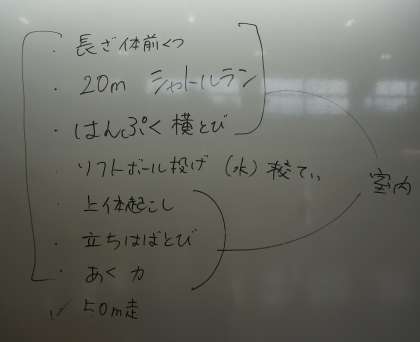 ・長ざ体前くつ
・20m シャトルラン
・はんぷく横とび
ソフトボール投げ (水) 校てい
・上体起こし
・立ちはばとび
・あく力
✓50m走
室内